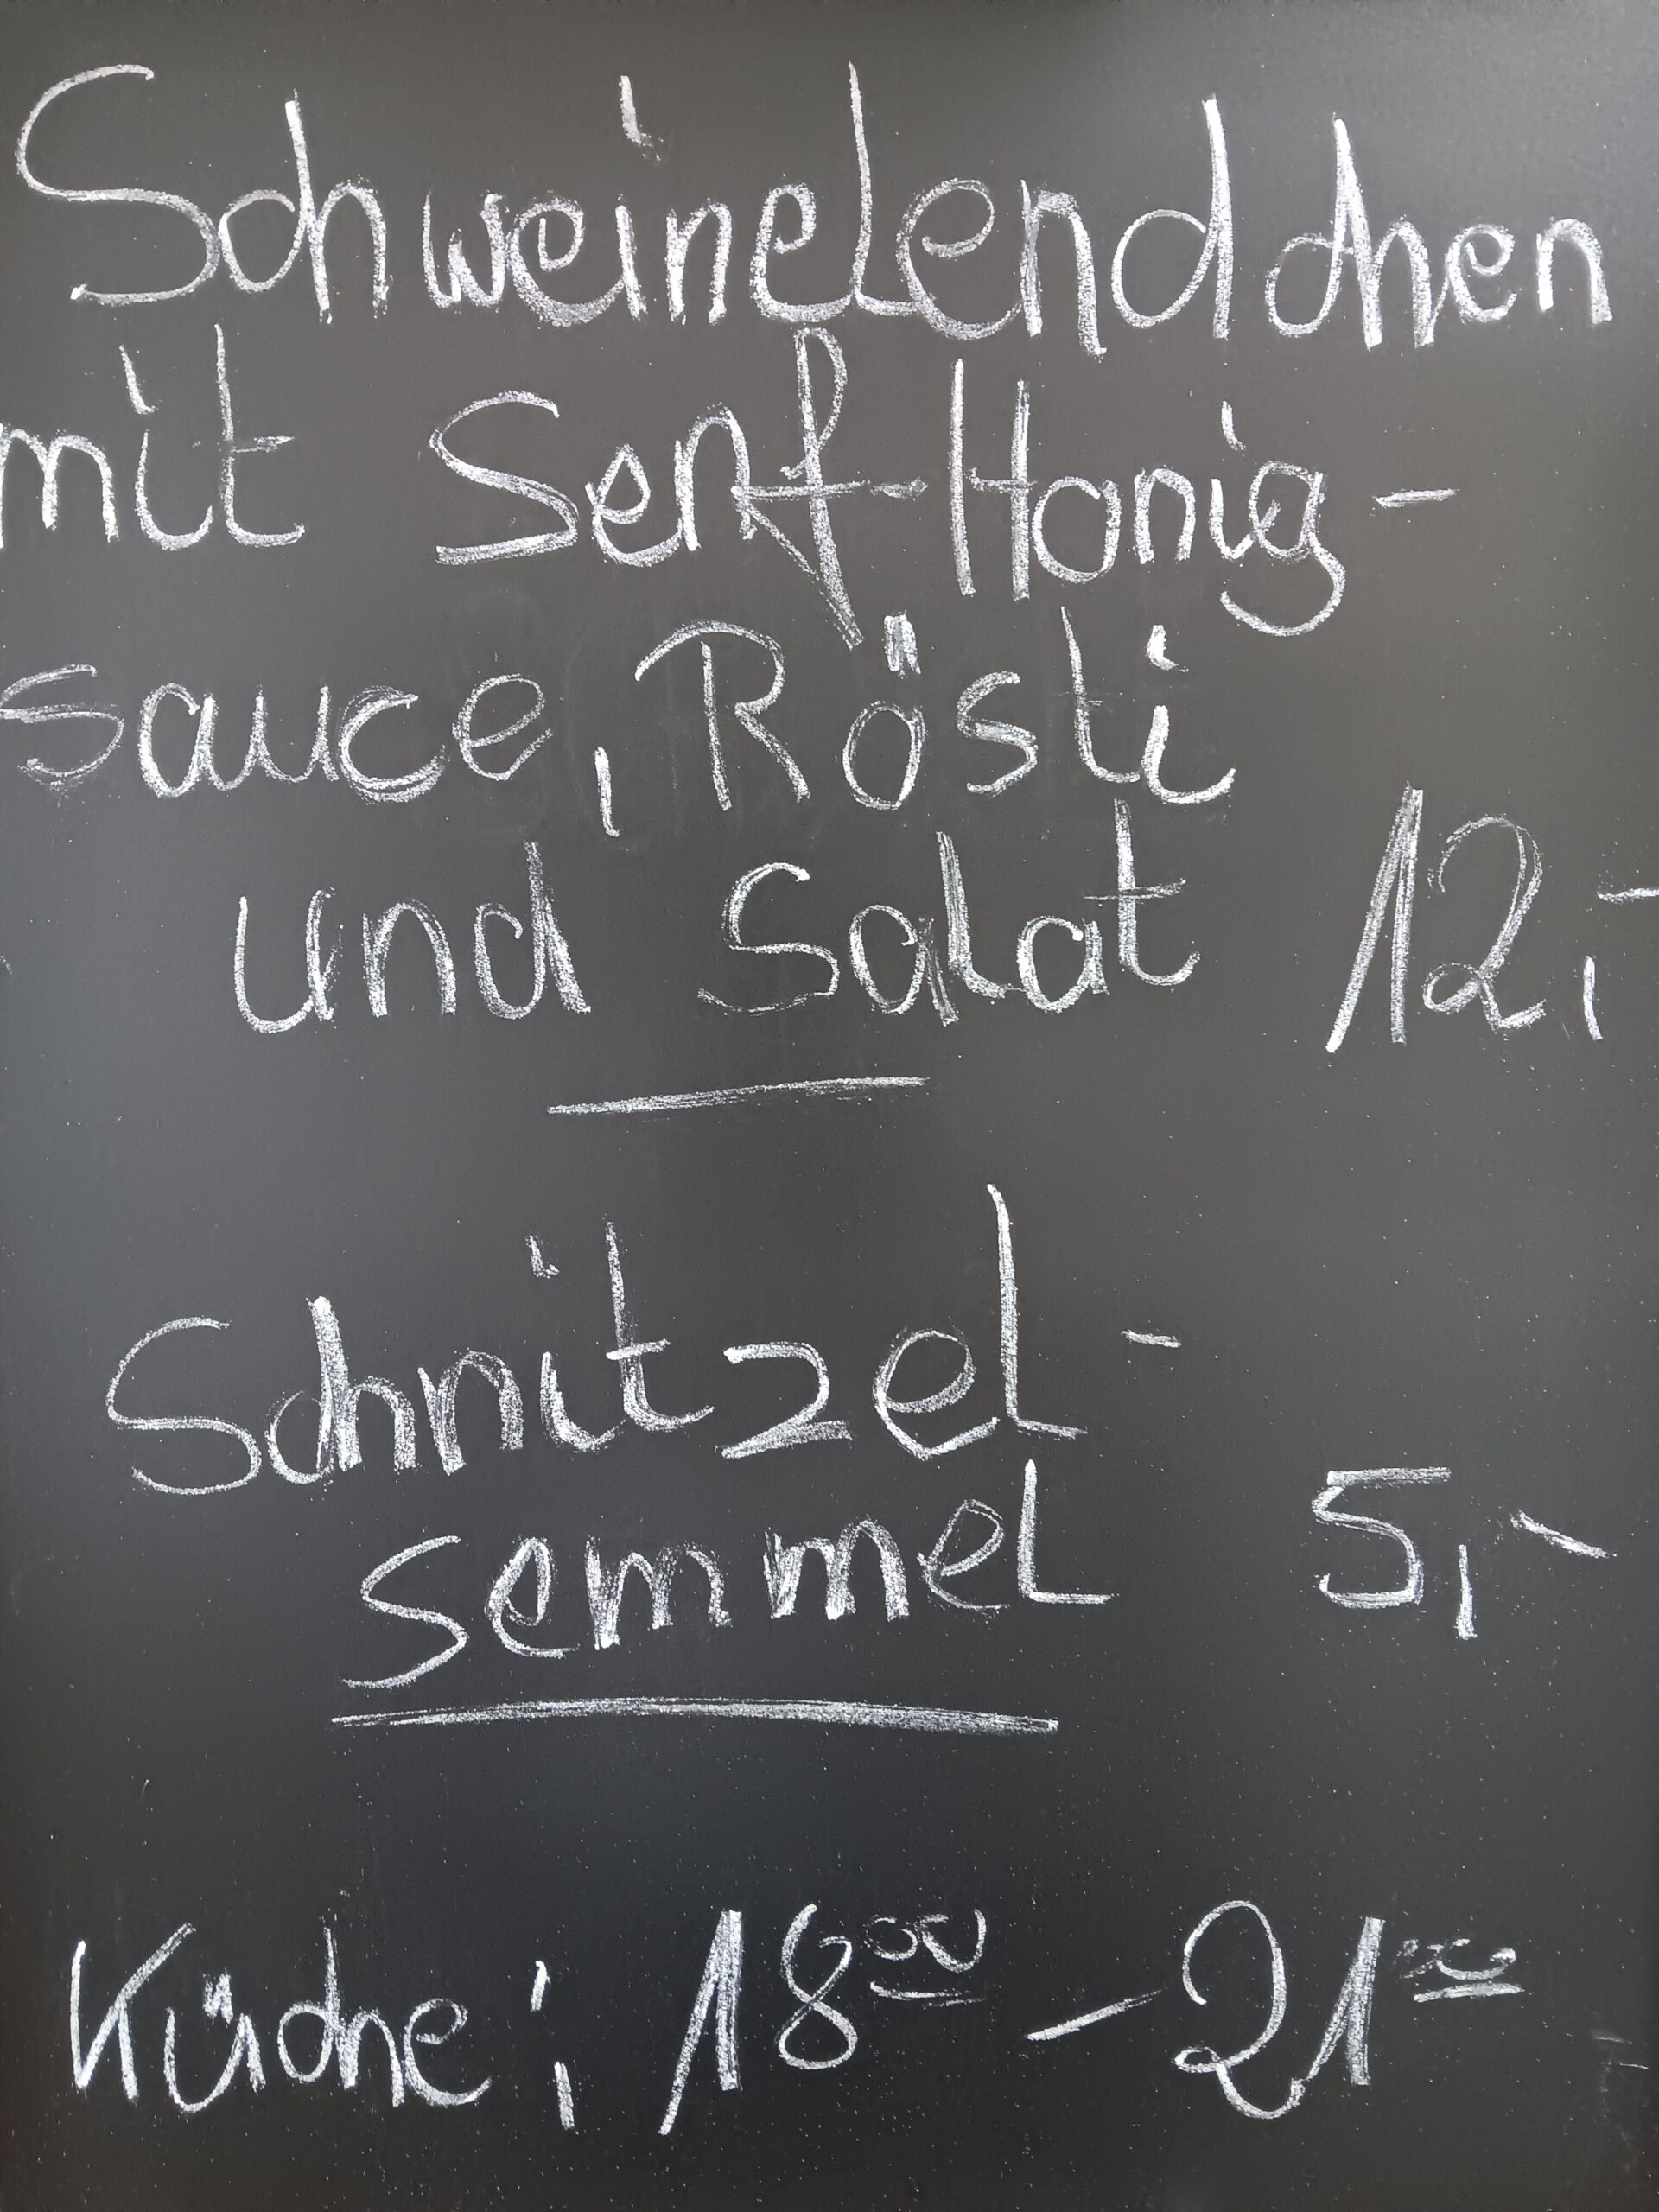 Schweinelendchen
mit Senf-Honig-
sauce, Rösti
und Salat 12,-
Schnitzel-
semmel 5,-
Küche: 18⁰⁰ - 21⁰⁰